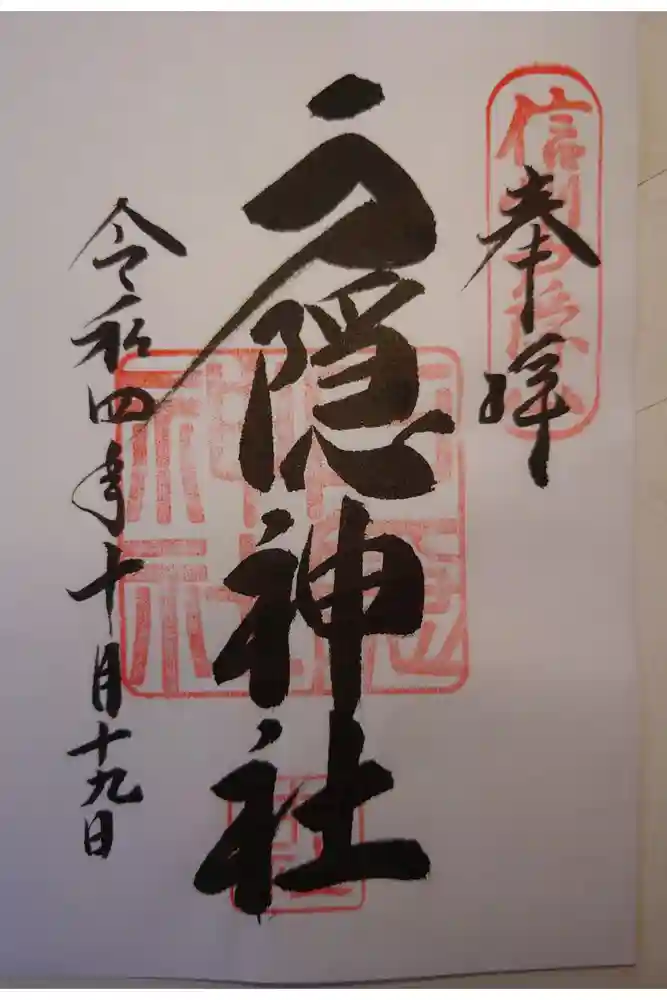 奉拝
信州戸隠山
戸隠神社
令和四年十月十九日